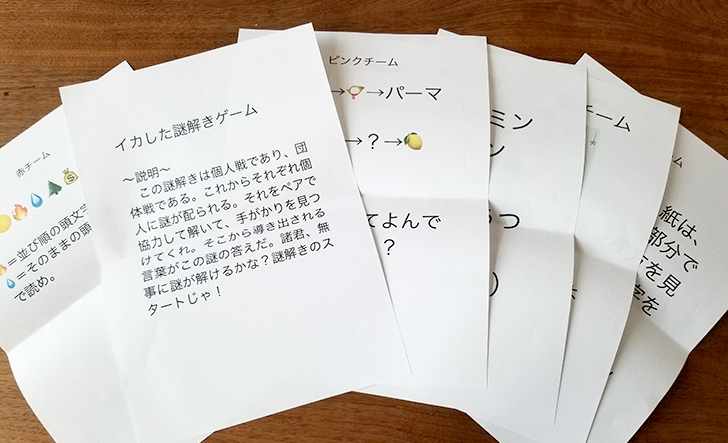 赤チーム
=並び順の頭文字
=そのままの頭
で読め。
イカした謎解きゲーム
〜説明〜
この謎解きは個人戦であり、団
体戦である。これからそれぞれ個
人に謎が配られる。それをペアで
協力して解いて、手がかりを見つ
けてくれ。そこから導き出される
言葉がこの謎の答えだ。諸君、無
事に謎が解けるかな?謎解きのス
タートじゃ!
ピンクチーム
→→パーマ
→?→
てよんで
?
ミン
ン
つ
)
ーム
紙は、
部分で
を見
を